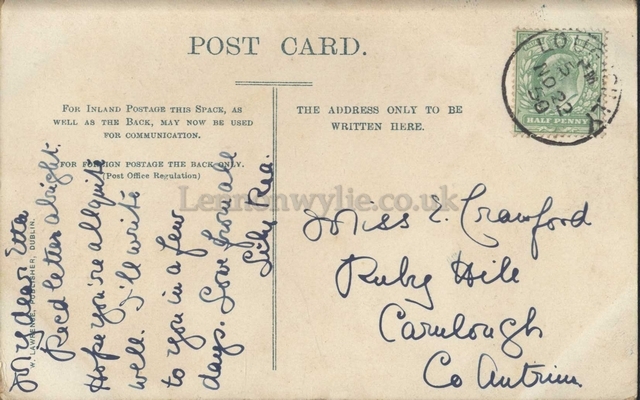 POST CARD.
FOR INLAND POSTAGE THIS SPACE, AS
WELL AS THE BACK, MAY NOW BE USED
FOR COMMUNICATION.
FOR FOREIGN POSTAGE THE BACK ONLY.
(Post Office Regulation)
THE ADDRESS ONLY TO BE
WRITTEN HERE.
HALF PENNY
NO 22
Lennonwylie.co.uk
W. LAWRENCE, PUBLISHER, DUBLIN.
My dear Etta
Recd letter alright.
Hope you're all quite
well. I'll write
to you in a few
days. Love from all
Lily Rea.
Miss E. Crawford
Ruby Hill
Carnlough
Co Antrim.